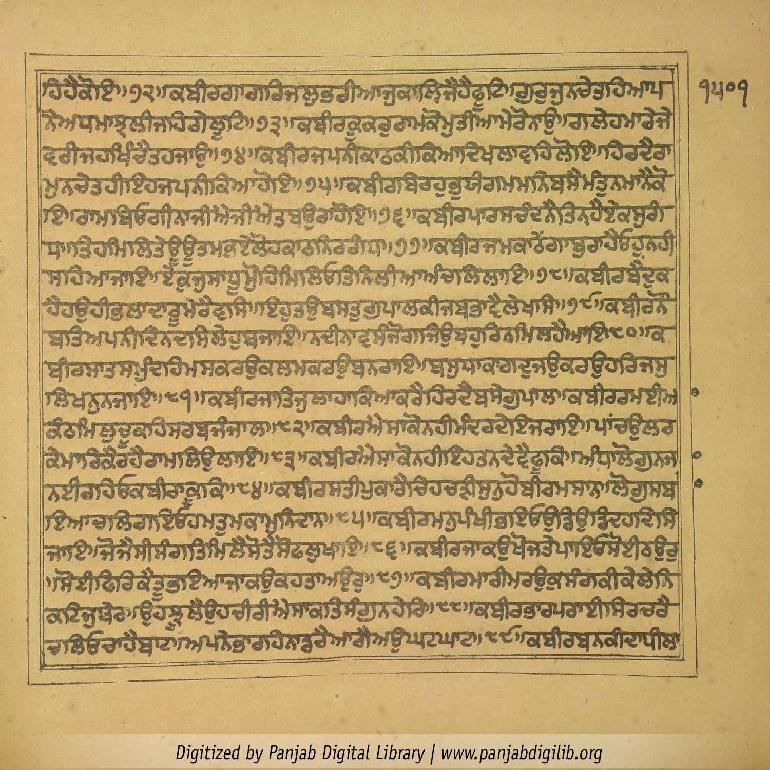 ਹਿਹੈਕੋਇ॥੭੨॥ਕਬੀਰਗਾਗਰਿਜਲਭਰੀਆਜੁਕਾਲਿਜੈਹੈਫੂਟਿ॥ਗੁਰੁਜੁਨਚੇਤਹਿਆਪ
੧੫੦੧
ਨੋਅਧਮਾਝਲੀਜਹਿਗੇਲੂਟਿ॥੭੩॥ਕਬੀਰਕੂਕਰੁਰਾਮਕੋਮੁਤੀਆਮੇਰੋਨਾਉ॥ਗਲੇਹਮਾਰੇਜੇ
ਵਰੀਜਹਖਿੰਚੈਤਹਜਾਉ॥੭੪॥ਕਬੀਰਜਪਨੀਕਾਠਕੀਕਿਆਦਿਖਲਾਵਹਿਲੋਇ॥ਹਿਰਦੈਰਾ
ਮੁਨਚੇਤਹੀਇਹਜਪਨੀਕਿਆਹੋਇ॥੭੫॥ਕਬੀਰਬਿਰਹੁਭੁਯੰਗਮਮਨਿਬਸੈਮੰਤੁਨਮਾਨੈਕੋ
ਇ॥ਰਾਮਬਿਓਗੀਨਾਜੀਐਜੀਐਤਬਉਰਾਹੋਇ॥੭੬॥ਕਬੀਰਪਾਰਸਚੰਦਨੈਤਿਨਹੈਏਕਸੁਗੰ
ਧ॥ਤਿਹਮਿਲਿਤੇਊਊਤਮਭਏਲੋਹਕਾਠਨਿਰਗੰਧ॥੭੭॥ਕਬੀਰਜਮਕਾਠੇਂਗਾਬੁਰਾਹੈਓਹੁਨਹੀ
ਸਹਿਆਜਾਇ॥ਏਕੁਜੁਸਾਧੂਮੋੁਹਿਮਿਲਿਓਤਿਨਿਲੀਆਅੰਚਲਿਲਾਇ॥੭੮॥ਕਬੀਰਬੈਦੁਕ
ਹੈਹਉਹੀਭਲਾਦਾਰੂਮੇਰੈਵਸਿ॥ਇਹੁਤਉਬਸਤੁਗੁਪਾਲਕੀਜਬਭਾਵੈਲੇਖਸਿ॥੭੯॥ਕਬੀਰਨੌ
ਬਤਿਆਪਨੀਦਿਨਦਸਲੇਹੁਬਜਾਇ॥ਨਦੀਨਾਵਸੰਜੋਗਜਿਉਬਹੁਰਿਨਮਿਲਹੈਆਇ॥੮੦॥ਕ
ਬੀਰਸਾਤਸਮੁੰਦਹਿਮਸੁਕਰਉਕਲਮਕਰਉਬਨਰਾਇ॥ਬਸੁਧਾਕਾਗਦੁਜਉਕਰਉਹਰਿਜਸੁ
ਲਿਖਨੁਨਜਾਇ॥੮੧॥ਕਬੀਰਜਾਤਿਜੁਲਾਹਾਕਿਆਕਰੈਹਿਰਦੈਬਸੇਗੁਪਾਲ॥ਕਬੀਰਰਮਈਅ
ਕੰਠਮਿਲੁਚੂਕਹਿਸਰਬਜੰਜਾਲ॥੮੨॥ਕਬੀਰਐਸਾਕੋਨਹੀਮੰਦਰੁਦੇਇਜਰਾਇ॥ਪਾਂਚਉਲਰ
ਕੇਮਾਰਿਕੈਰਹੈਰਾਮਲਿਉਲਾਇ॥੮੩॥ਕਬੀਰਐਸਾਕੋਨਹੀਇਹਤਨਦੇਵੈਫੂਕਿ॥ਅੰਧਾਲੋਗੁਨਜ
ਨਈਰਹਿਓਕਬੀਰਾਕੂਕਿ॥੮੪॥ਕਬੀਰਸਤੀਪੁਕਾਰੈਚਿਹਚੜੀਸੁਨੁਹੋਬੀਰਮਸਾਨ॥ਲੋਗੁਸਬ
ਇਆਚਲਿਗਇਓਹਮਤੁਮਕਾਮੁਨਿਦਾਨ॥੮੫॥ਕਬੀਰਮਨੁਪੰਖੀਭਇਓਉਡਿਉਡਿਦਹਦਿਸਿ
ਜਾਇ॥ਜੋਜੈਸੀਸੰਗਤਿਮਿਲੈਸੋਤੈਸੋਫਲੁਖਾਇ॥੮੬॥ਕਬੀਰਜਾਕਉਖੋਜਤੇਪਾਇਓਸੋਈਠਉਰੁ
॥ਸੋਈਫਿਰਿਕੈਤੂਭਇਆਜਾਕਉਕਹਤਾਅਉਰੁ॥੮੭॥ਕਬੀਰਮਾਰੀਮਰਉਕੁਸੰਗਕੀਕੇਲੇਨਿ
ਕਟਿਜੁਬੇਰਿ॥ਉਹਝੂਲੈਉਹਚੀਰੀਐਸਾਕਤਸੰਗੁਨਹੇਰਿ॥੮੮॥ਕਬੀਰਭਾਰਪਰਾਈਸਿਰਚਰੈ
ਚਲਿਓਚਾਹੈਬਾਟ॥ਅਪਨੇਭਾਰਹਿਨਾਡਰੈਆਗੈਅਉਘਟਘਾਟ॥੮੯॥ਕਬੀਰਬਨਕੀਦਾਧੀਲਾ
Digitized by Panjab Digital Library | www.panjabdigilib.org